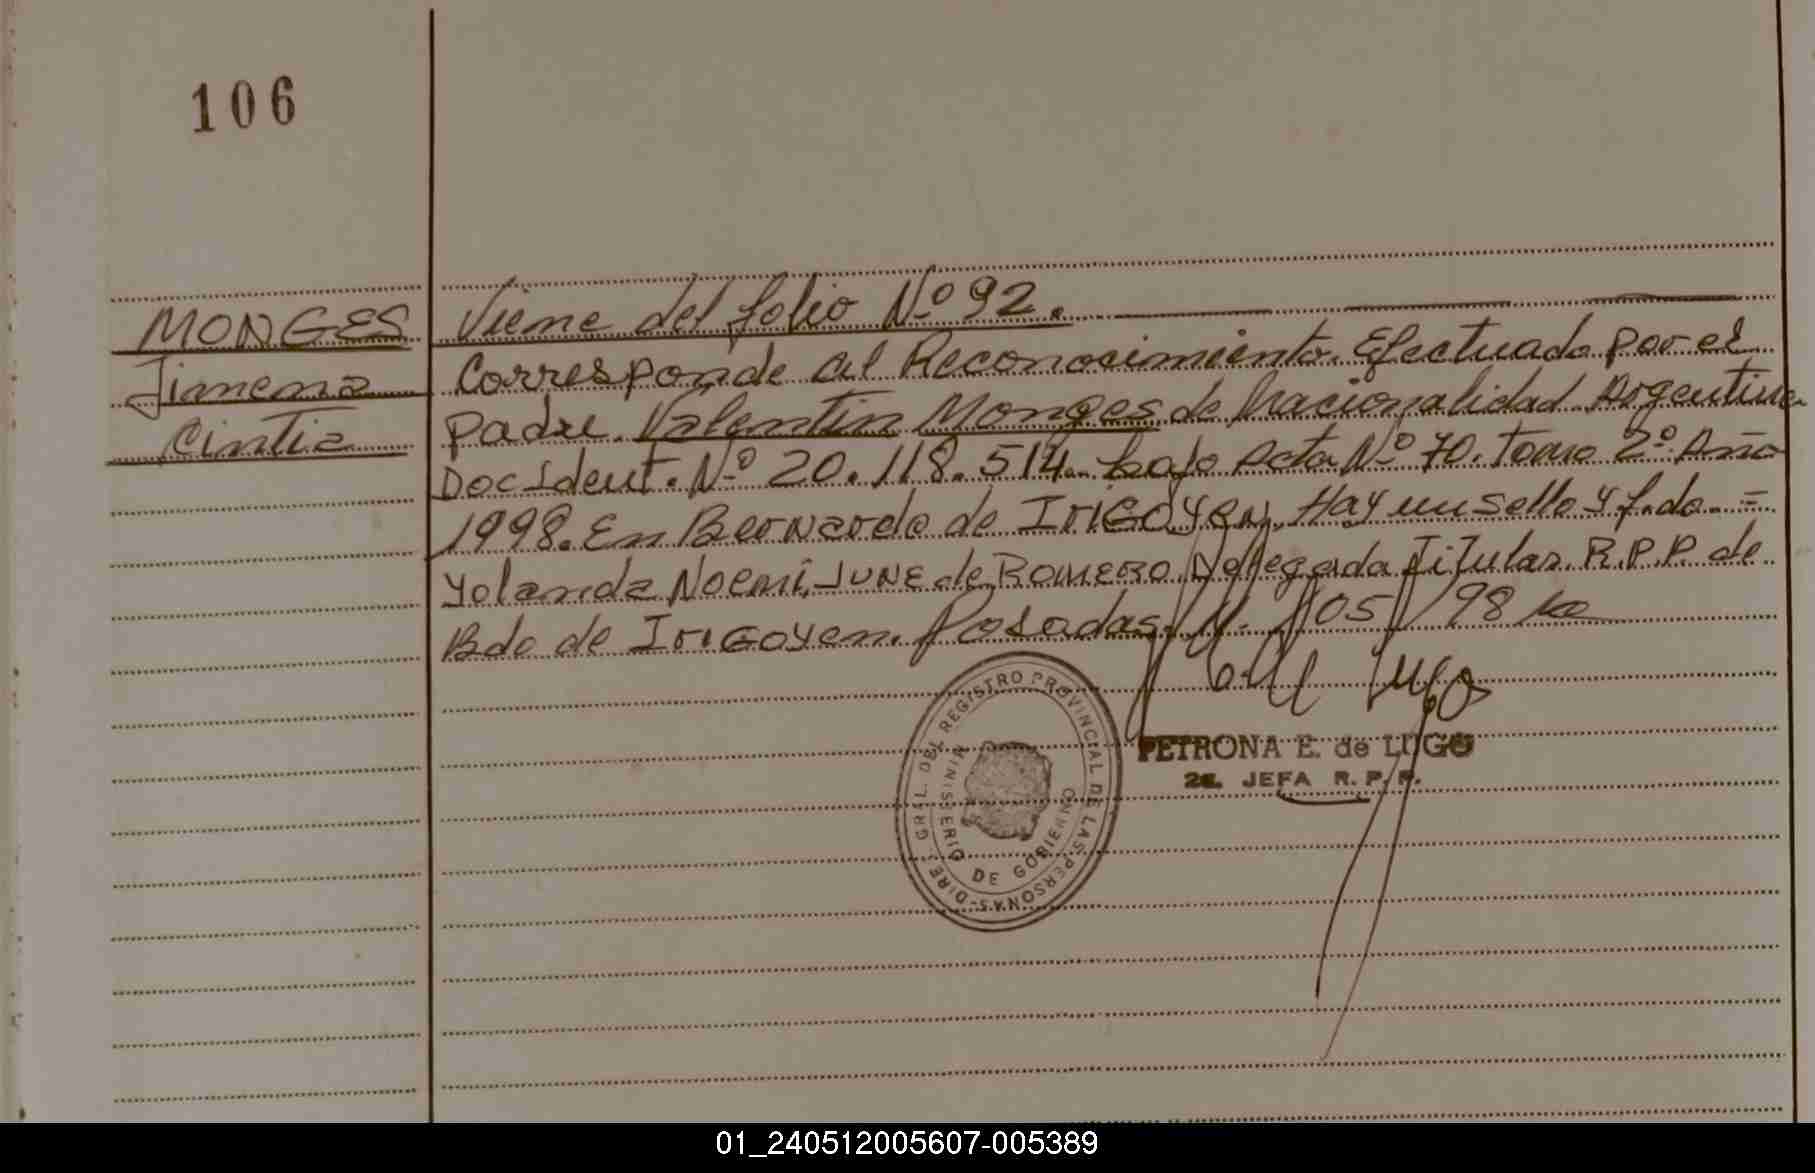 106
MONGES
Jimena
Cintia
Viene del folio Nº 92.
Corresponde al Reconocimiento Efectuado por el
padre Valentin Monges de Nacionalidad Argentina
Doc Ident. Nº 20.118.514. bajo Acta Nº 70. Tomo 2º Año
1998. En Bernardo de Irigoyen. Hay un sello y f.do. =
Yolanda Noemi JUNE de Romero Delegada Titular R.P.P. de
Bdo de Irigoyen. Posadas, 05/98
DIRE. GRAL. DEL REGISTRO PROVINCIAL DE LAS PERSONAS-
MINISTERIO DE GOBIERNO
PETRONA E. de LUGO
2a. JEFA R. P. P.
01_240512005607-005389